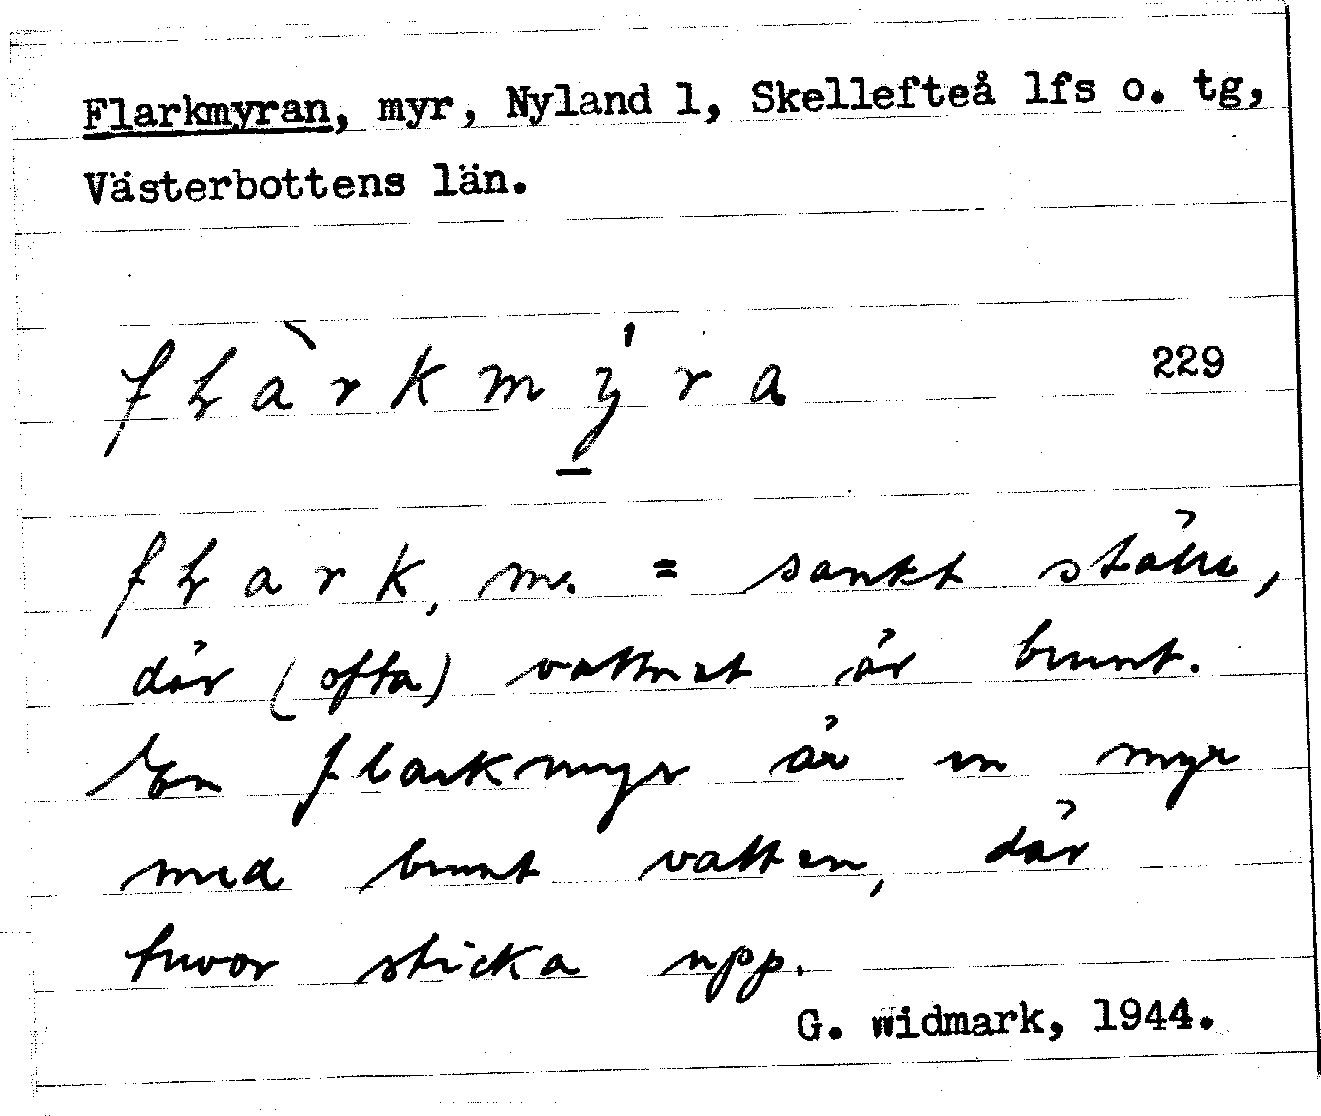 Flarkmyran, myr, Nyland 1, Skellefteå lfs o. tg,
Västerbottens län.
flàrkmý̱ra 229
flark, m. = sankt ställe,
där (ofta) vattnet är brunt.
En flarkmyr är en myr
med brunt vatten, där
tuvor sticka upp.
G. Widmark, 1944.